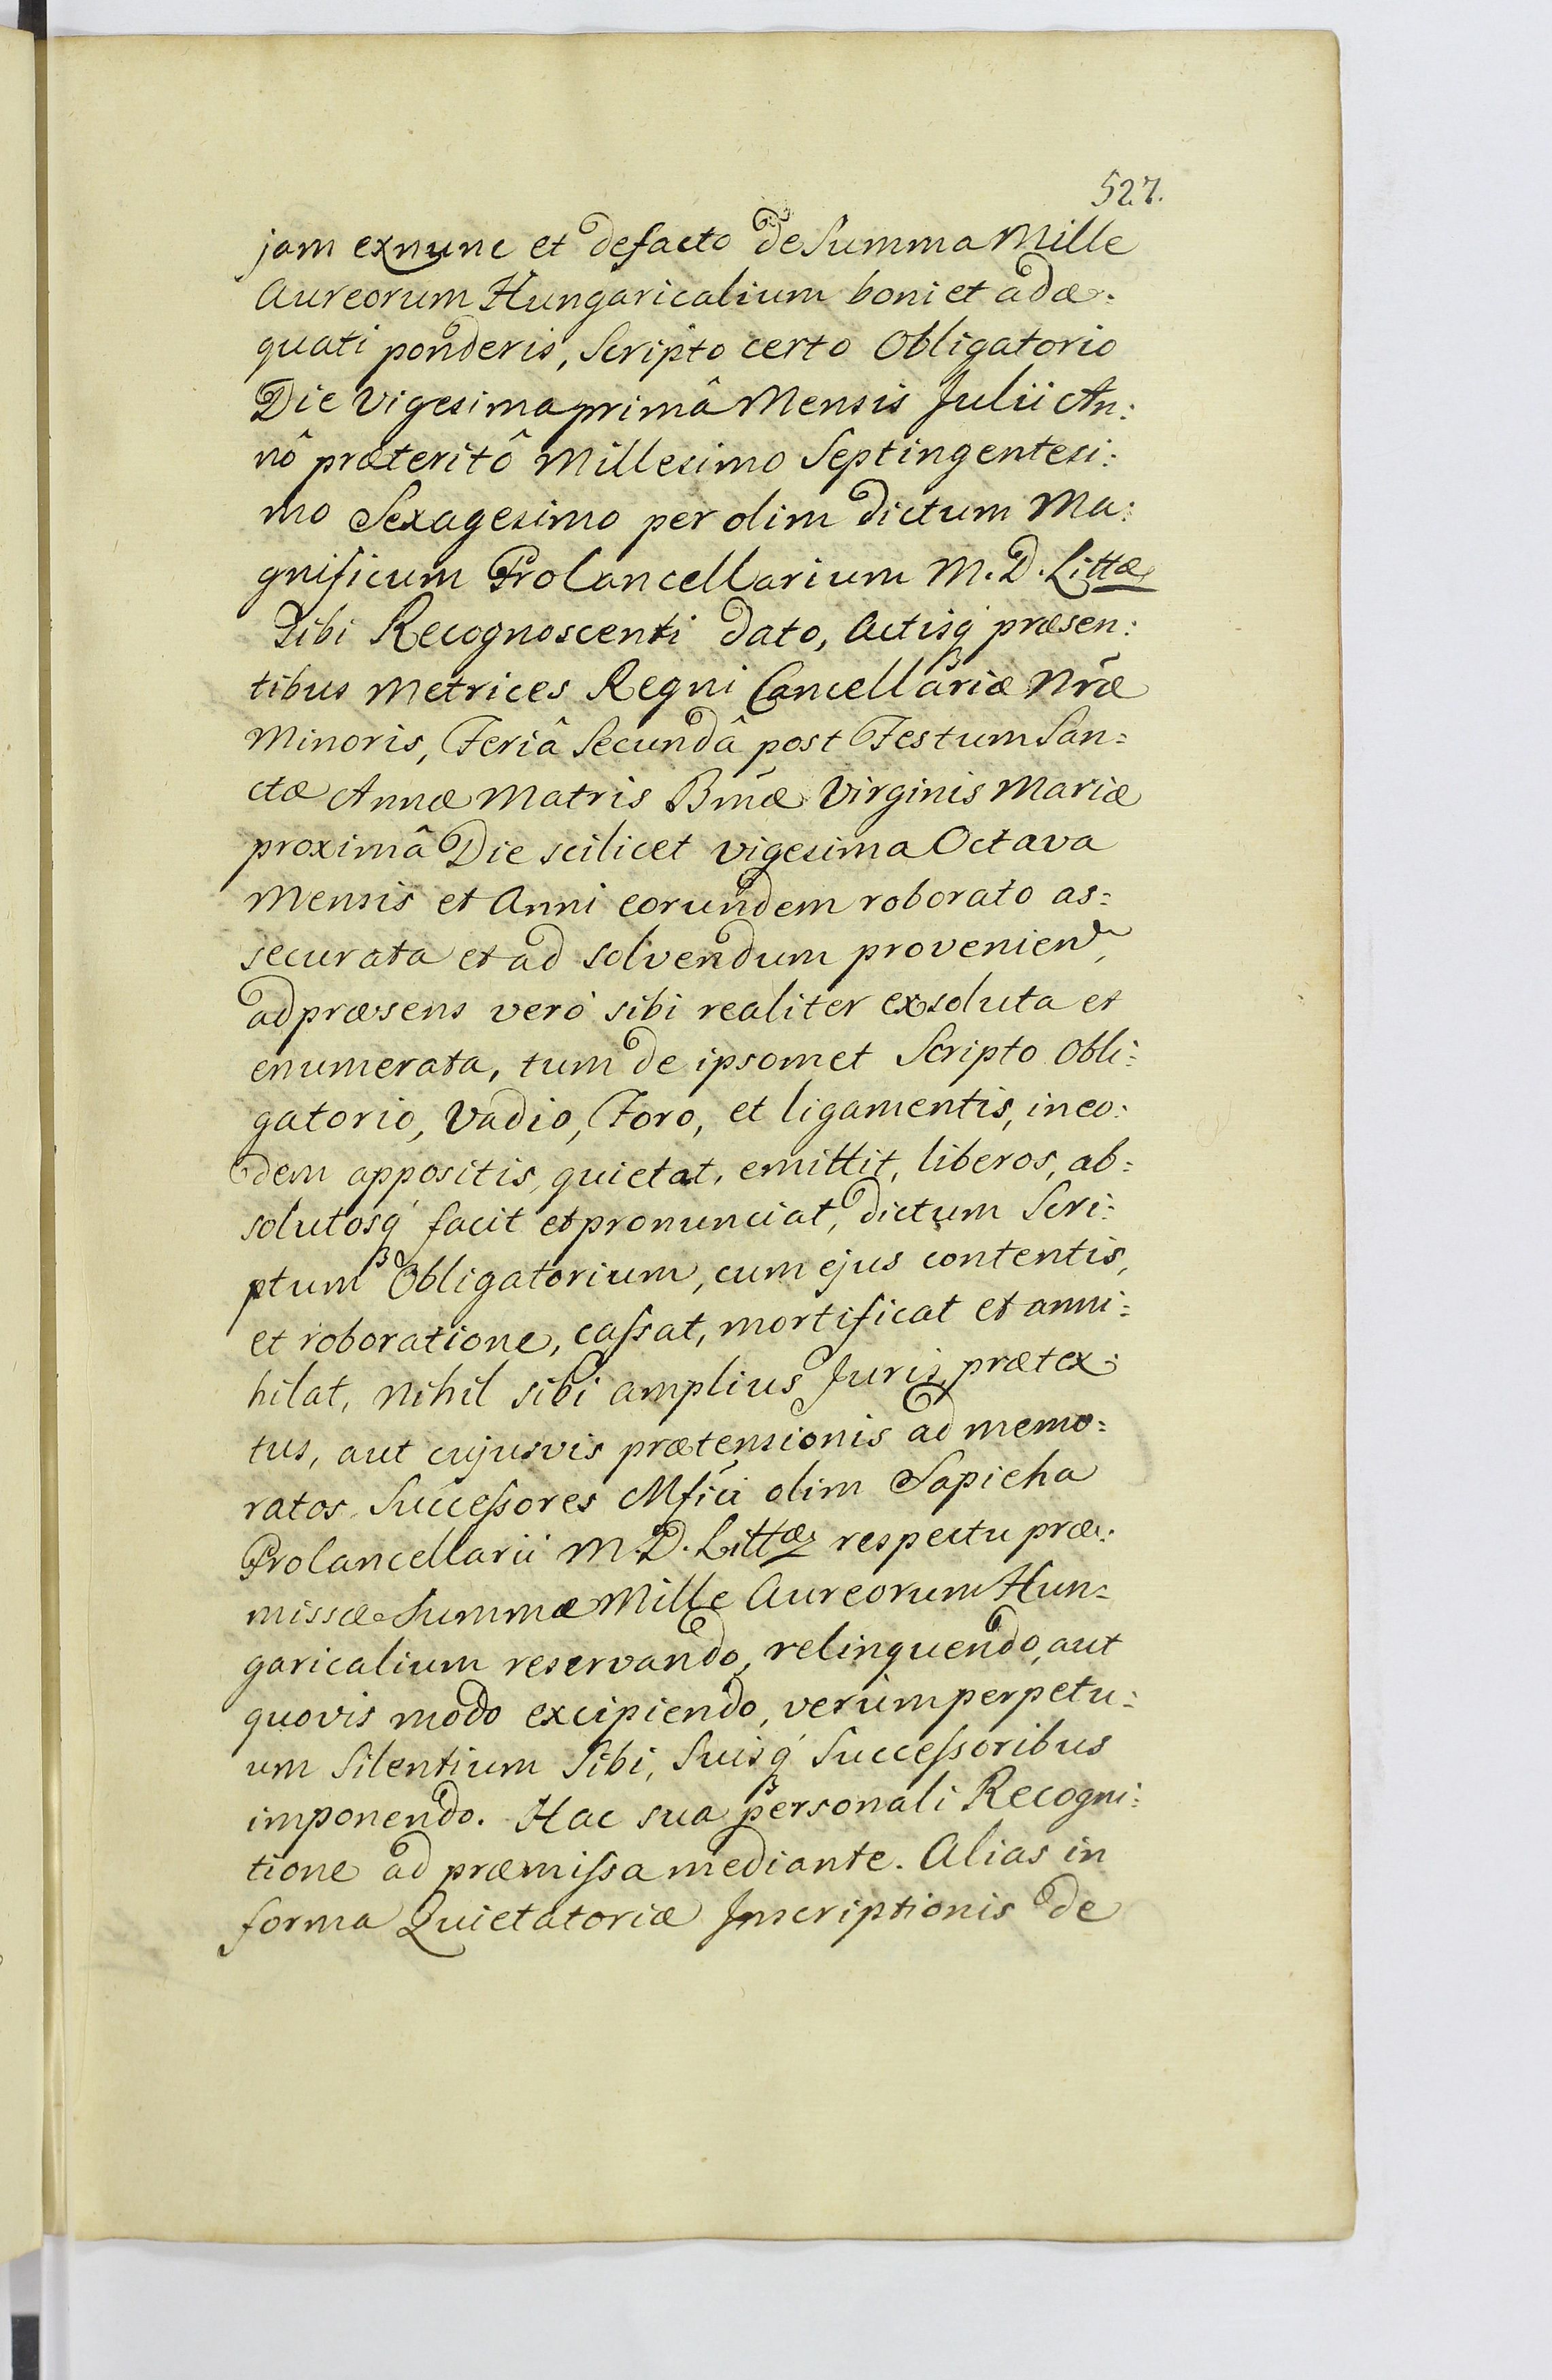 527.
jam exnunc et defacto de Summa Mille
Aureorum Hungaricalium boni et adæ:
quati ponderis, Scripto certo Obligatorio
Die Vigesima primâ Mensis Julii An:
nô præteritô Millesimo Septingentesi:
mo Sexagesimo per olim dictum Ma:
gnificum ProCancellarium M. D. Littæ
Sibi Recognoscenti dato, Actisq́ præsen:
tibus Metrices Regni Cancellariæ Nr̃æ
Minoris, Feriâ Secundâ post Festum San:
ctæ Annæ Matris Bm̃æ Virginis Mariæ
proximâ Die scilicet vigesima Octava
Mensis et Anni eorundem roborato as:
securata et ad solvendum provenien,
ad præsens verò sibi realiter exsoluta et
enumerata, tum de ipsomet Scripto Obli:
gatorio, Vadio, Foro, et ligamentis, in eo:
dem appositis, quietat, emittit, liberos, ab:
solutosq́ facit et pronunciat, dictum Scri:
ptum Obligatorium, cum ejus contentis,
et roboratione, caſsat, mortificat et anni:
hilat, Nihil sibi amplius Juris, prætex:
tus, aut cujusvis prætensionis ad memo:
ratos Succeſsores Mfici olim Sapieha
ProCancellarii M. D. Littæ respectu præ:
missæ Summæ Mille Aureorum Hun:
garicalium reservando, relinquendo, aut
quovis modo excipiendo, verùm perpetu:
um Silentium Sibi, Suisq́ Succeſsoribus
imponendo. Hac sua personali Recogni:
tione ad præmiſsa mediante. Alias in
forma Quietatoriæ Inscriptionis de